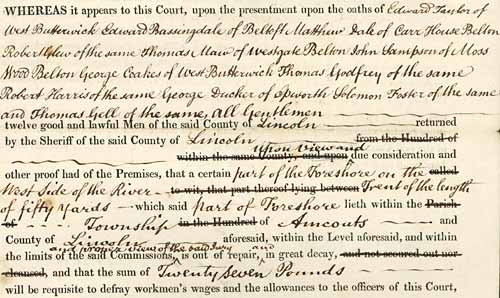 WHEREAS it appears to this Court, upon the presentment upon the oaths of Edward Taylor of
West Butterwick Edward Bassingdale of Beltoft Matthew Dale of Carr House Belton
Robert Maw of the same Thomas Maw of Westgate Belton John Sampson of Moss
Wroo Belton George Coakes of West Butterwick Thomas Godfrey of the same
Robert Harris of the same George Ducker of Epworth Solomon Foster of the same
and Thomas Gell of the same, all Gentlemen
twelve good and lawful Men of the said County of Lincoln returned
by the Sheriff of the said County of Lincoln from the Hundred of
upon View and
within the same County, and upon due consideration and
other proof had of the Premises, that a certain part of the Foreshore on the called
West Side of the River to wit, that part thereof lying between Trent of the length
of fifty Yards which said part of Foreshore lieth within the Parish
of Township in the Hundred of Amcouts and
County of Lincoln aforesaid, within the Level aforesaid, and within
and upon a view of the said Jury and
the limits of the said Commissions, is out of repair, in great decay, and not scoured out nor
cleansed, and that the sum of Twenty Seven Pounds
will be requisite to defray workmen's wages and the allowances to the officers of this Court,